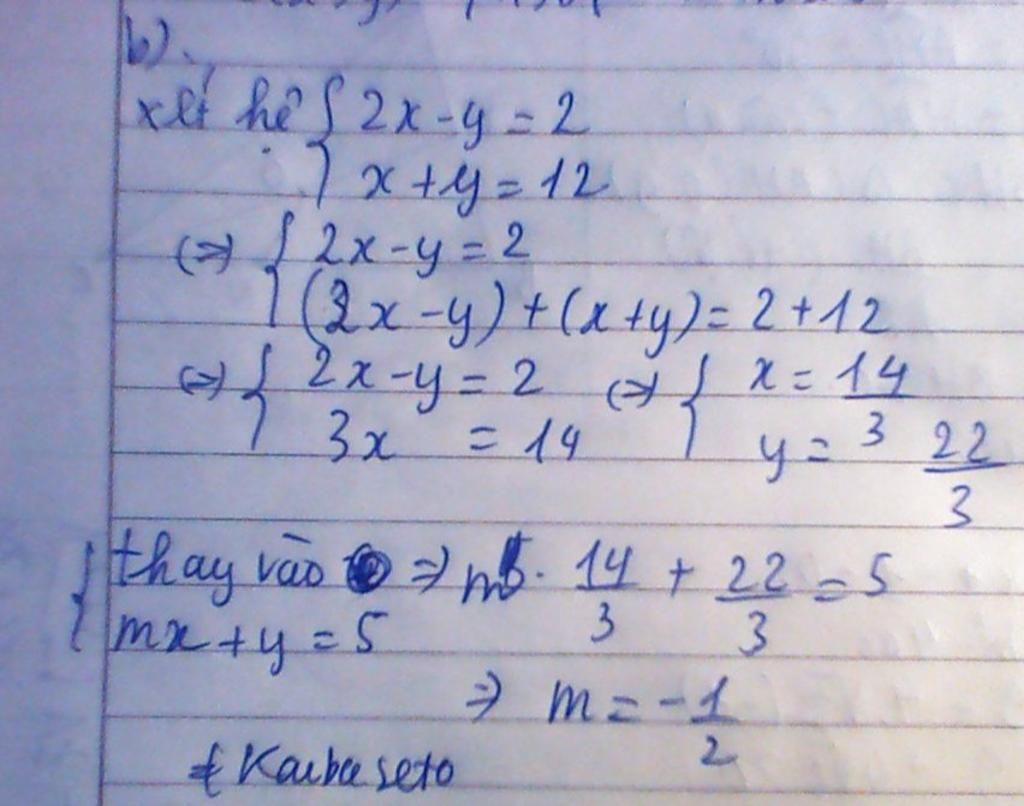 b).
xét hệ { 2x - y = 2
x + y = 12
(=>) { 2x - y = 2
(2x - y) + (x + y) = 2 + 12
(=>) { 2x - y = 2 (=>) { x = 14/3
3x = 14 y = 22/3
{ thay vào => m. 14/3 + 22/3 = 5
mx + y = 5
=> m = -1/2
Kaiba seto